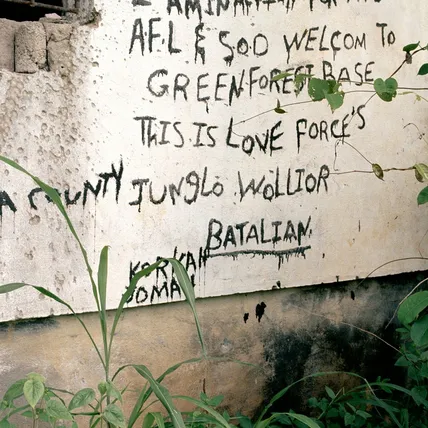 AFL & SOD WELCOM TO
GREEN FOREST BASE
THIS IS LOVE FORCE'S
A COUNTY JUNGLO WOLLIOR
BATALIAN.
KORKAN